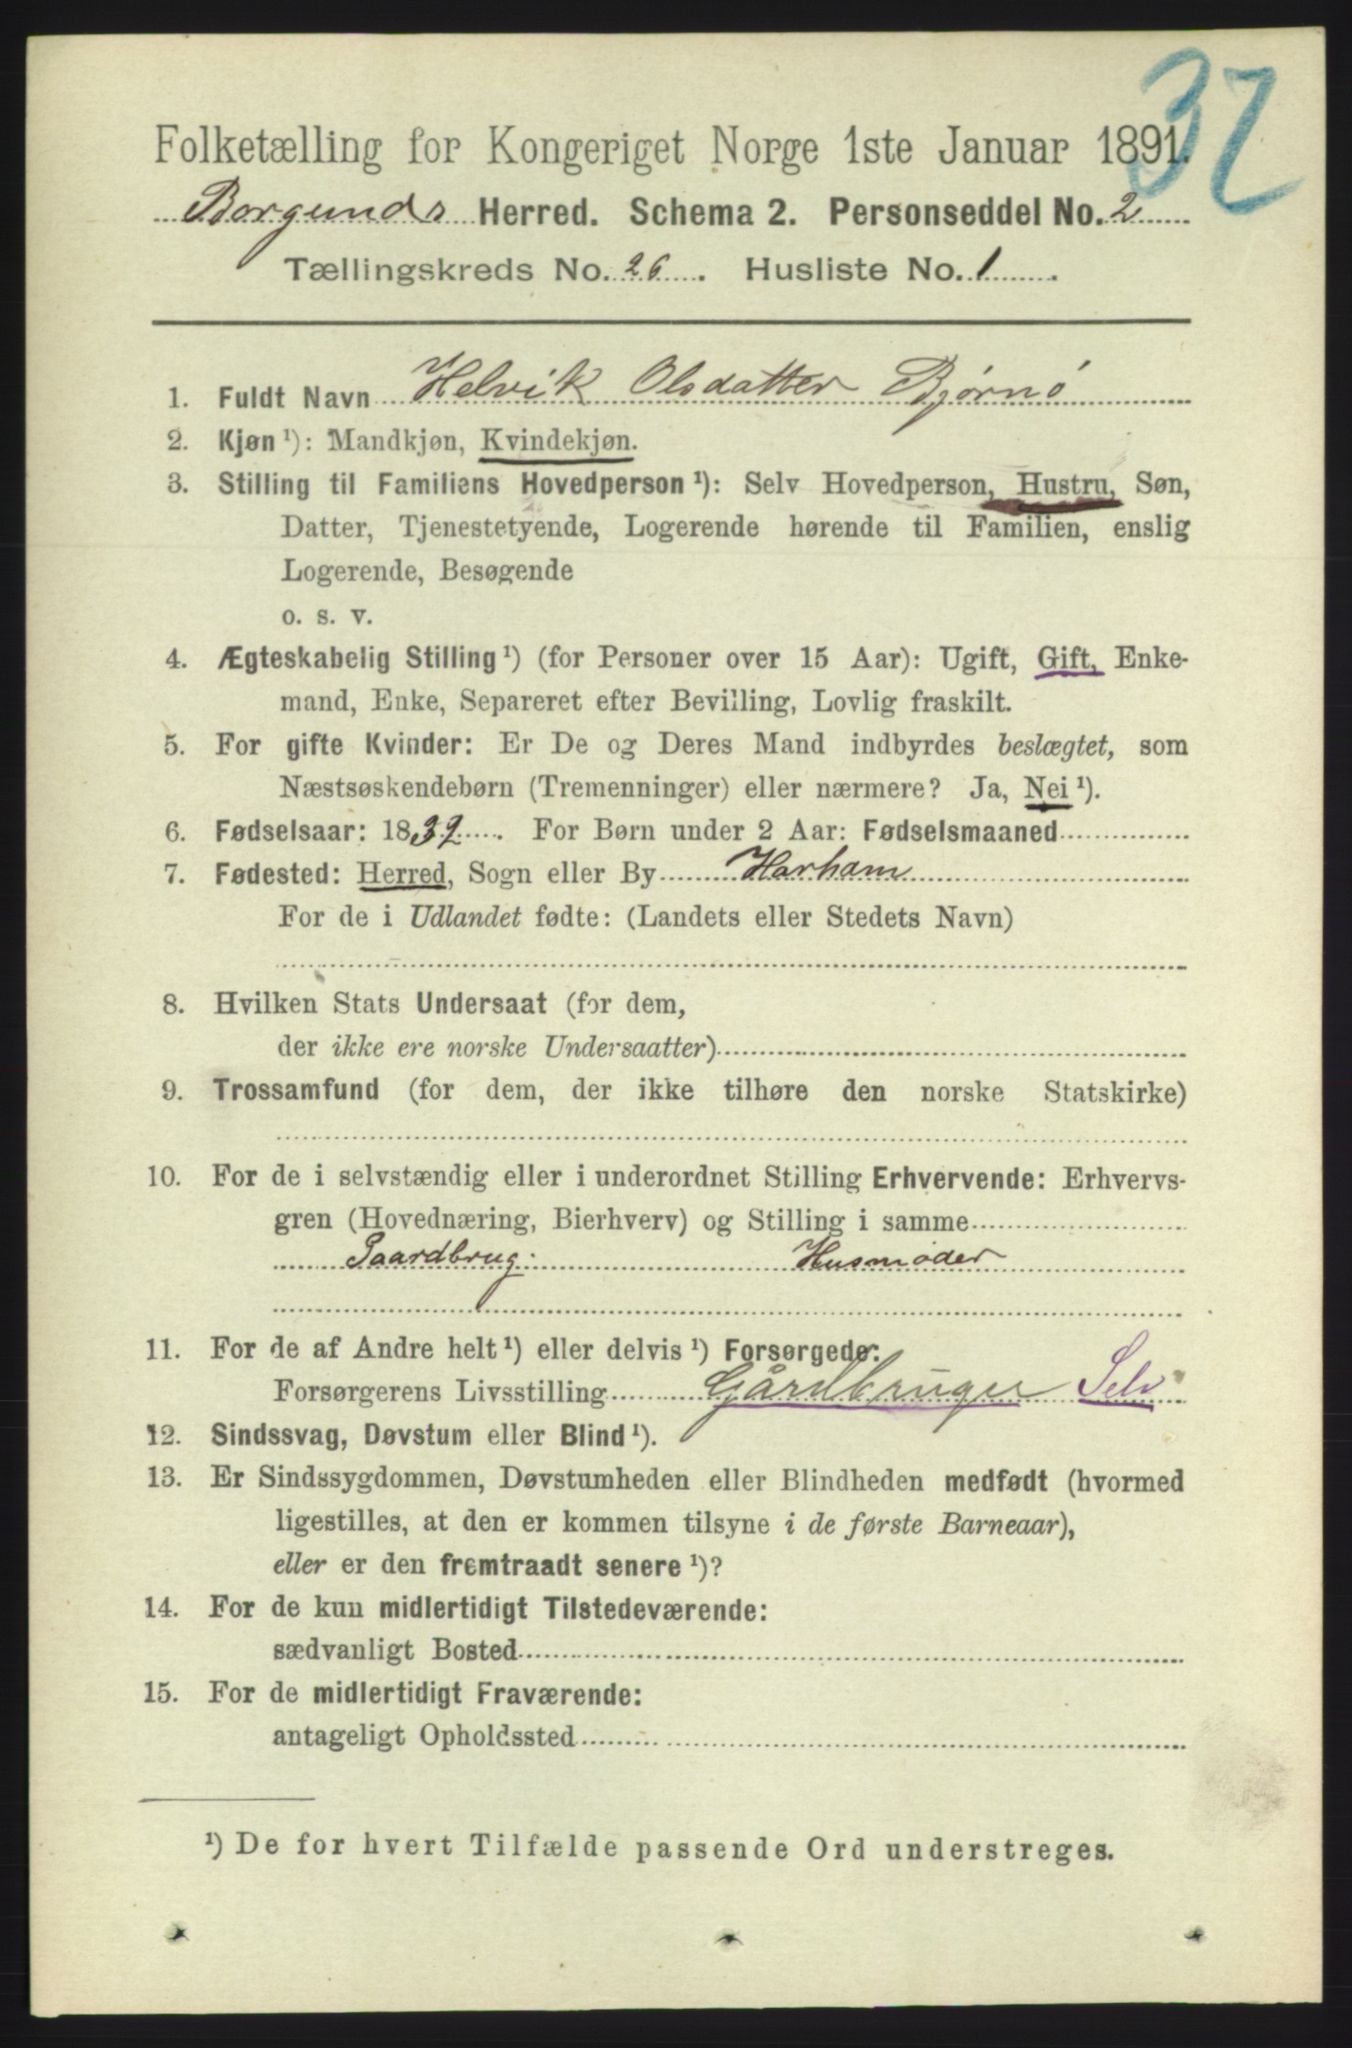 32
Folketælling for Kongeriget Norge 1ste Januar 1891.
Borgunds Herred. Schema 2. Personseddel No. 2
Tællingskreds No. 26. Husliste No. 1.
1. Fuldt Navn Helvik Olsdatter Bjørnø
2. Kjøn ¹): Mandkjøn, Kvindekjøn.
3. Stilling til Familiens Hovedperson ¹): Selv Hovedperson, Hustru, Søn,
Datter, Tjenestetyende, Logerende hørende til Familien, enslig
Logerende, Besøgende
o. s. v.
4. Ægteskabelig Stilling ¹) (for Personer over 15 Aar): Ugift, Gift, Enke-
mand, Enke, Separeret efter Bevilling, Lovlig fraskilt.
5. For gifte Kvinder: Er De og Deres Mand indbyrdes beslægtet, som
Næstsøskendebørn (Tremenninger) eller nærmere? Ja, Nei ¹).
6. Fødselsaar: 1832. For Børn under 2 Aar: Fødselsmaaned
7. Fødested: Herred, Sogn eller By Harham
For de i Udlandet fødte: (Landets eller Stedets Navn)
8. Hvilken Stats Undersaat (for dem,
der ikke ere norske Undersaatter)
9. Trossamfund (for dem, der ikke tilhøre den norske Statskirke)
10. For de i selvstændig eller i underordnet Stilling Erhvervende: Erhvervs-
gren (Hovednæring, Bierhverv) og Stilling i samme
Gaardbrug. Husmoder
11. For de af Andre helt ¹) eller delvis ¹) Forsørgede:
Forsørgerens Livsstilling Gårdbruger Selv
12. Sindssvag, Døvstum eller Blind ¹).
13. Er Sindssygdommen, Døvstumheden eller Blindheden medfødt (hvormed
ligestilles, at den er kommen tilsyne i de første Barneaar),
eller er den fremtraadt senere ¹)?
14. For de kun midlertidigt Tilstedeværende:
sædvanligt Bosted
15. For de midlertidigt Fraværende:
antageligt Opholdssted
¹) De for hvert Tilfælde passende Ord understreges.